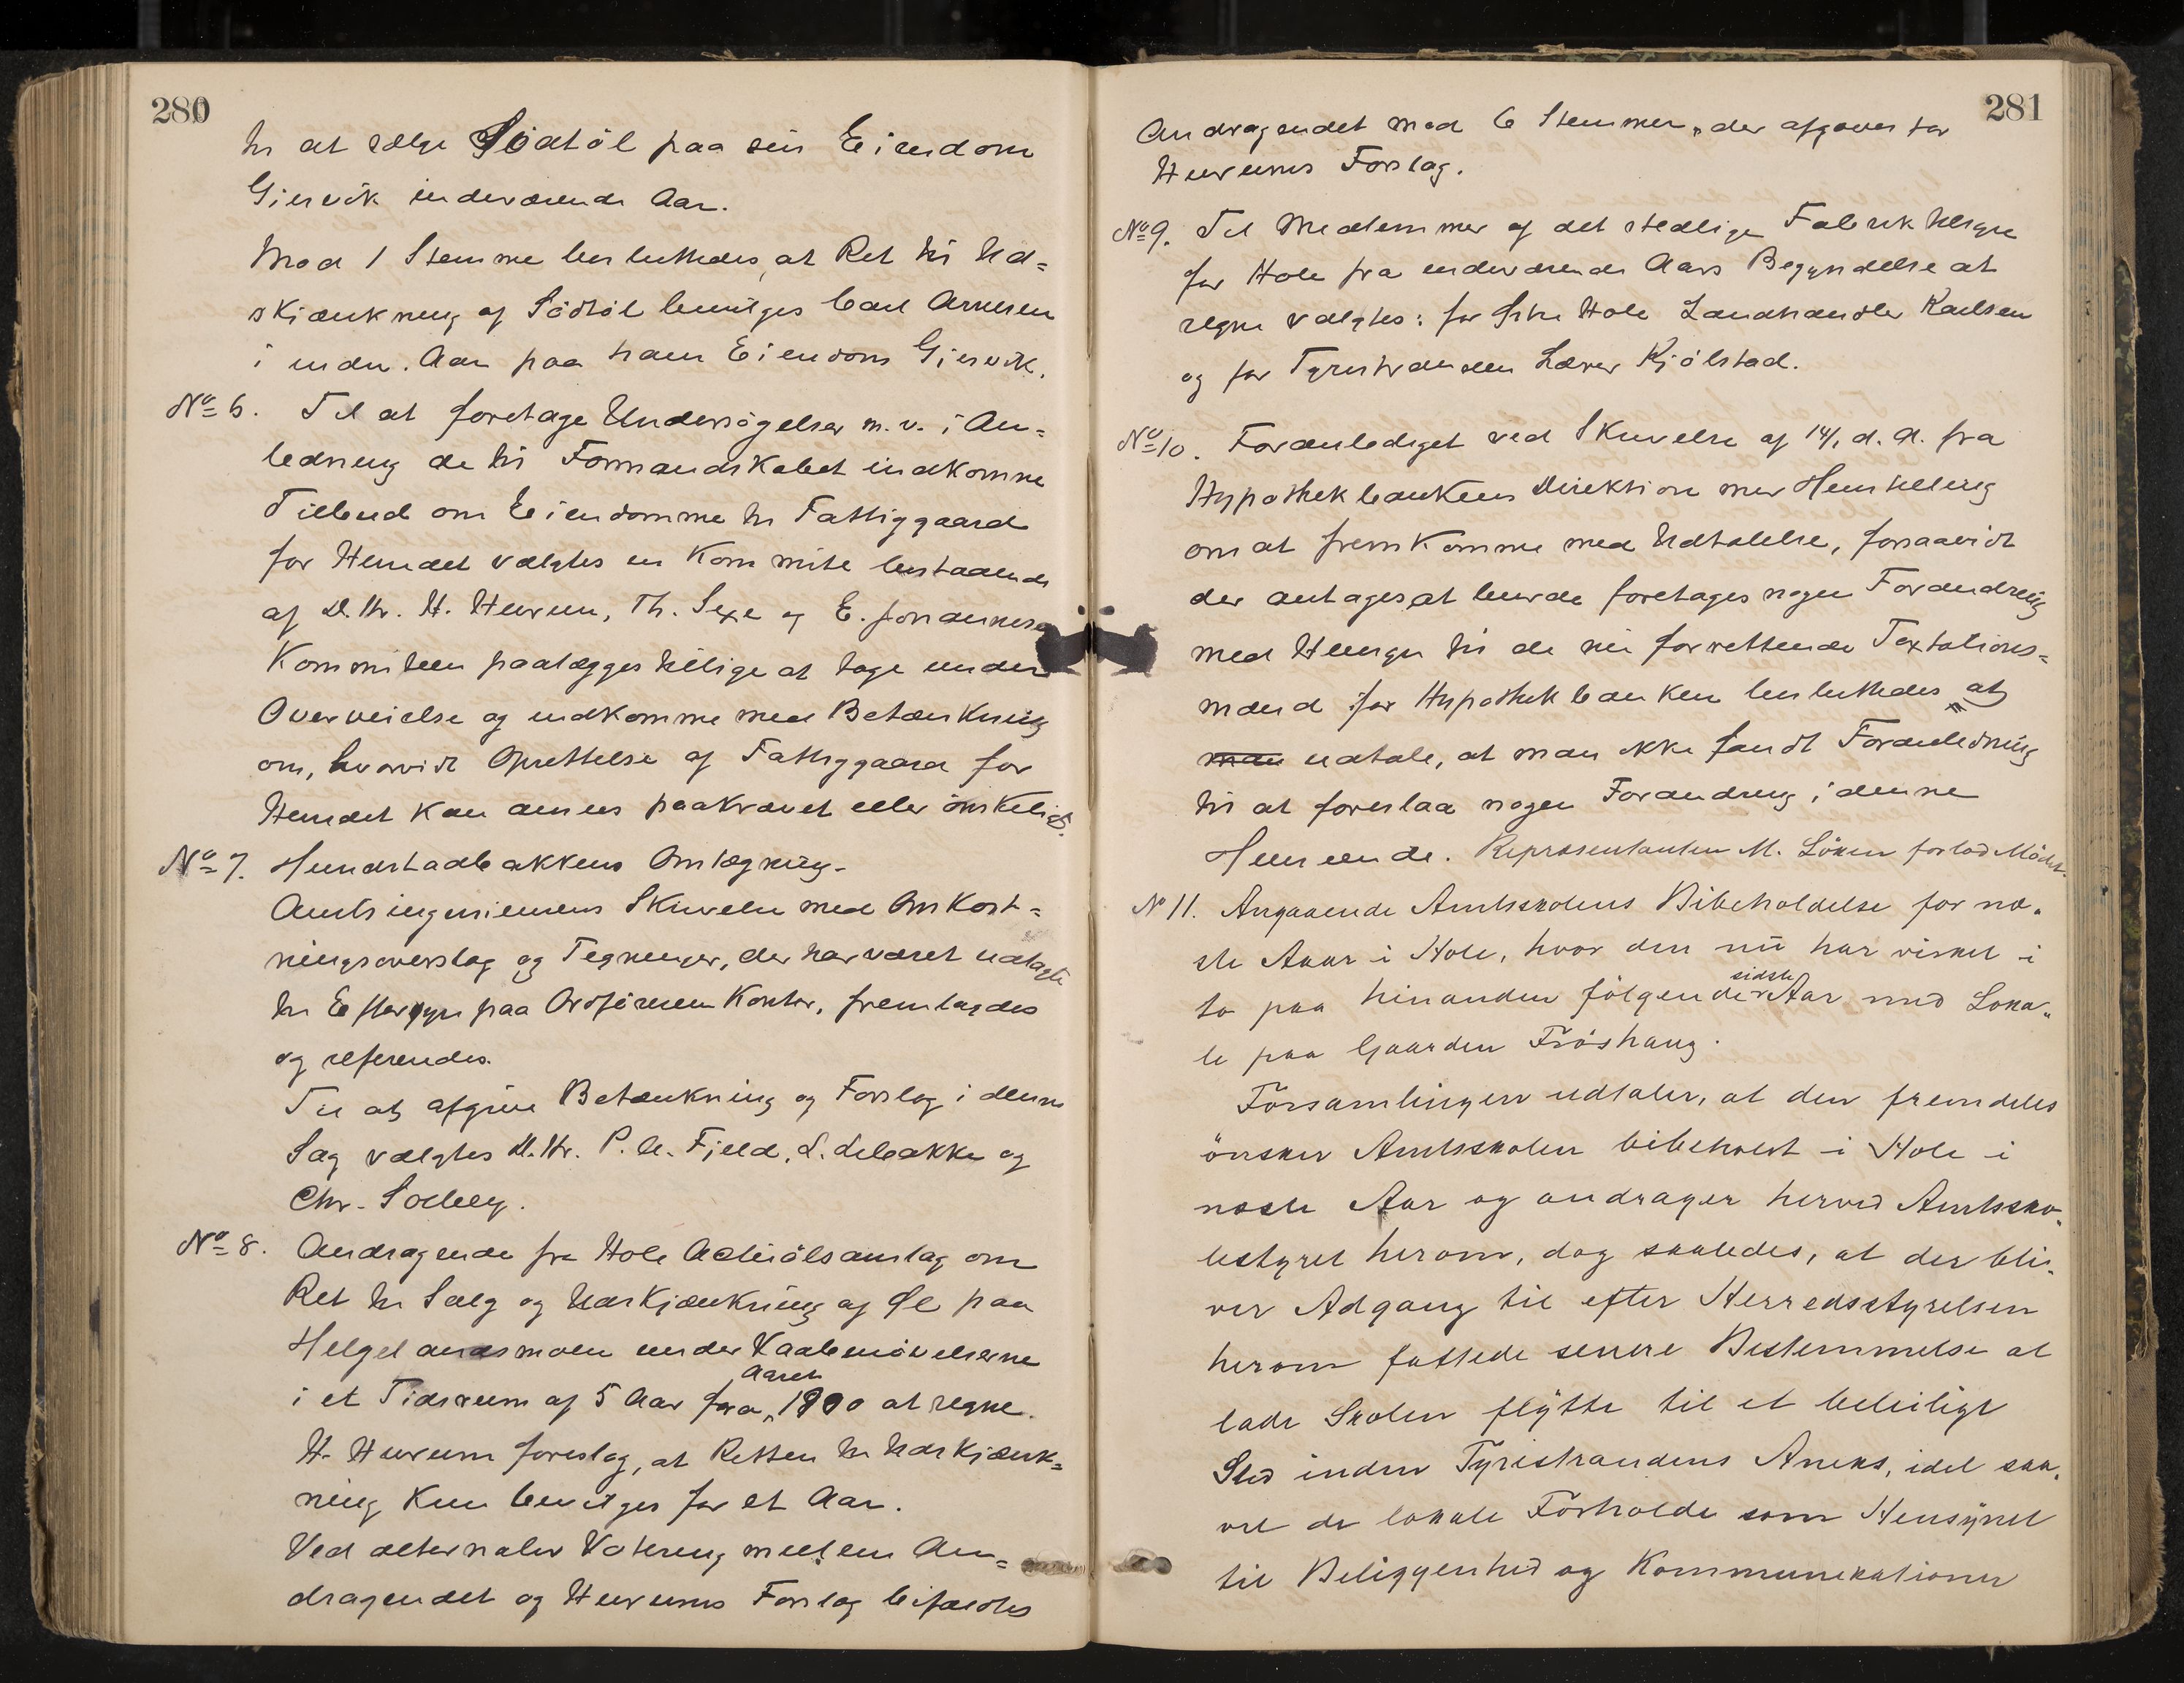 280
til at sælge Södtöl paa sin Eiendom
Giersvik indeværende Aar.
Mod 1 Stemme besluttedes, at Ret til Ud=
skjænkning af Södtöl bevilges Carl Arnesen
i indv. Aar paa hans Eiendom Giersvik.
No 6. Til at foretage Undersögelser m. v. i An=
ledning de til Formandskabet indkomne
Tilbud om Eiendomme til Fattiggaard
for Herredet valgtes en Kommite bestaaende
af D. Hr. H. Hurum, Th. Sexe og E. Johannesen
Kommiteen paalægges tillige at tage under
Overveielse og indkomme med Betænkning
om, hvorvidt Oprettelse af Fattiggaard for
Herredet kan ansees paakrævet eller önskeligt.
No 7. Hundstadbakkens Omlægning.
Amtsingeniörens Skrivelse med Omkost=
ningsoverslag og Tegninger, der har været udlagte
til Eftersyn paa Ordförerens Kontor, fremlagdes
og refereredes.
Til at afgive Betænkning og Forslag i denne
Sag valgtes D. Hr. P. A. Fjeld, L. Libakke og
Chr. Solberg.
No 8. Andragende fra Hole Actiölsamlag om
Ret til Salg og Udskjænkning af Øl paa
Helgelandsmoen under Vaabenövelserne
i et Tidsrum af 5 Aar fra Aaret 1890 at regne.
H. Hurum foreslog, at Retten til Udskjænk=
ning kun bevilges for et Aar.
Ved alternativ Votering mellem An=
dragendet og Hurums Forslag bifaldtes
281
Andragendet mod 6 Stemmer, der afgaves for
Hurums Forslag.
No 9. Til Medlemmer af det stedlige Fabriktilsyn
for Hole fra indeværende Aars Begyndelse at
regne valgtes: for Hole Landhandler Karlsen
og for Tyristranden Lærer Kjölstad.
No 10. Foranlediget ved Skrivelse af 14/1 d. A. fra
Hypothekbankens Direktion med Henstilling
om at fremkomme med Udtalelse, forsaavidt
der antages at burde foretages nogen Forandring
med Hensyn til de nu forrettende Taxtations=
mænd for Hypothekbanken besluttedes at
man udtale, at man ikke fandt Foranledning
til at foreslaa nogen Forandring i denne
Henseende. Repræsentanten M. Löken forlod Mödet.
No 11. Angaaende Amtsskolens Bibeholdelse for næ-
ste Aar i Hole, hvor den nu har virket i
to paa hinanden fölgende sidste Aar med Loka-
le paa Gaarden Fröshaug.
Forsamlingen udtaler, at den fremdeles
önsker Amtsskolen bibeholdt i Hole i
næste Aar og andrager herved Amtssko-
lestyret herom, dog saaledes, at der bli-
ver Adgang til efter Herredsstyrelsen
herom fattede senere Bestemmelse at
lade Skolen flytte til et beleiligt
Sted inden Tyristrandens Aneks, idet saa-
vel de lokale Forholde som Hensynet
til Beliggenhed og Kommunikationer